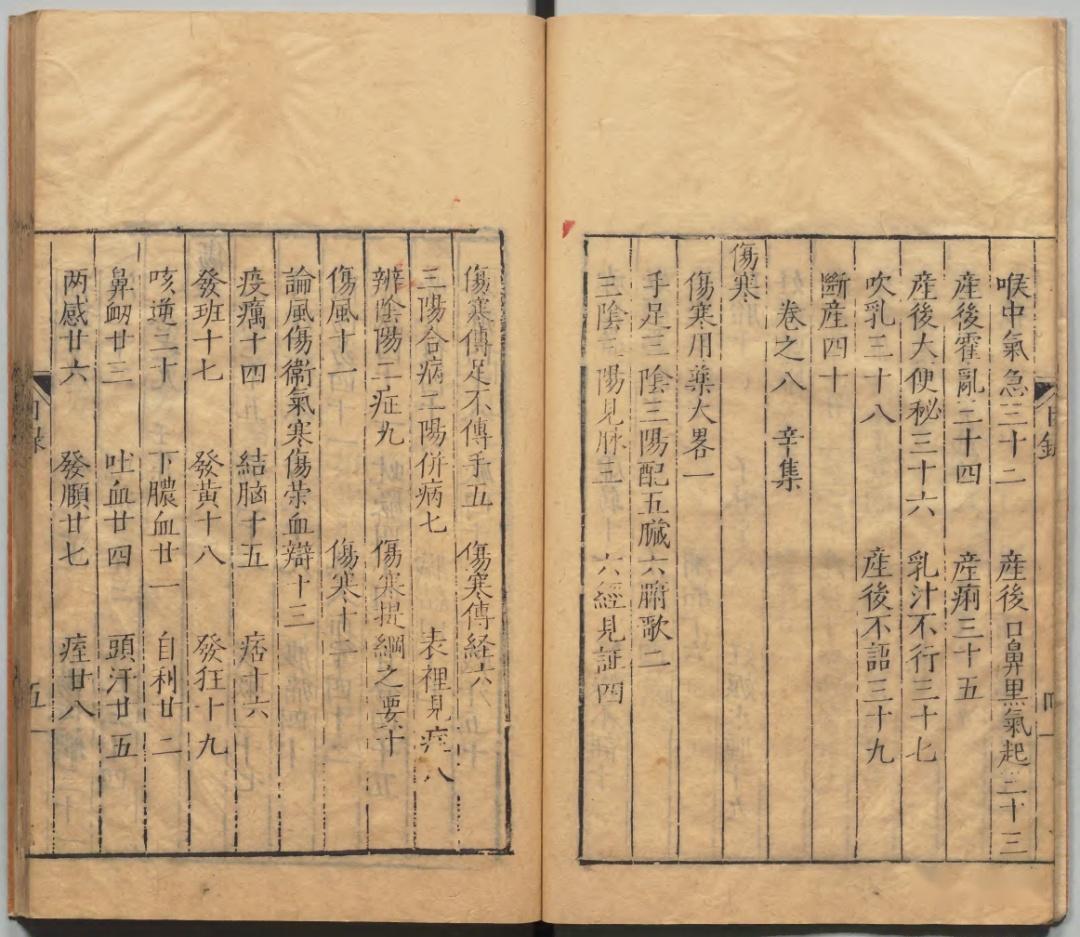 喉中氣急三十二　産後口鼻黒氣起三十三
産後霍亂三十四　産痢三十五
産後大便秘三十六　乳汁不行三十七
吹乳三十八　産後不語三十九
斷産四十
卷之八　辛集
傷寒
傷寒用藥大畧一
手足三陰三陽配五臟六腑歌二
三陰三陽見脉三　六經見証四
目録
四
傷寒傳足不傳手五　傷寒傳経六
三陽合病二陽併病七　表裡見症八
辨陰陽二症九　傷寒提綱之要十
傷風十一　傷寒十二
論風傷衛氣寒傷荣血辯十三
疫癘十四　結脑十五　痞十六
發班十七　發黃十八　發狂十九
咳逆二十　下膿血廿一　自利廿二
鼻衂廿三　吐血廿四　頭汗廿五
两感廿六　發頥廿七　痓廿八
目録
五